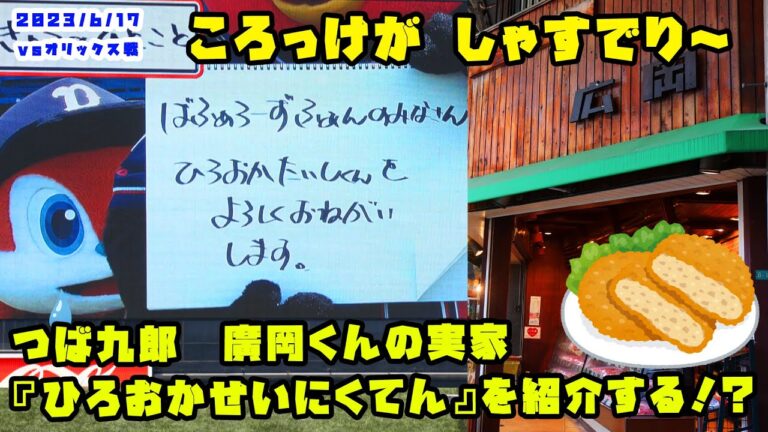 2023/6/17
vsオリックス戦
ころっけが しゃすでり～
広岡
ばふぁろーずふぁんのみなさん
ひろおかたいしくんを
よろしくおねがい
します。
つば九郎 廣岡くんの実家
『ひろおかせいにくてん』を紹介する！？